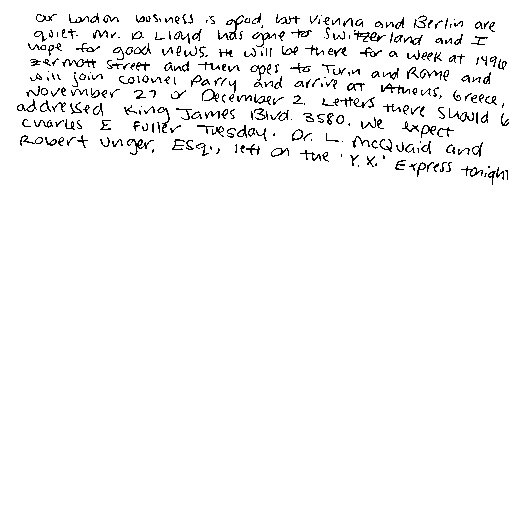 our London business is good, but Vienna and Berlin are
quiet. Mr. D. Lloyd has gone to Switzerland and I
hope for good news. He will be there for a week at 1496
Zermott Street and then goes to Turin and Rome and
will join Colonel Parry and arrive at Athens, Greece,
November 27 or December 2. Letters there should b
addressed King James Blvd. 3580. We expect
Charles E Fuller Tuesday. Dr. L. McQuaid and
Robert Unger, Esq., left on the 'Y.X.' Express tonight